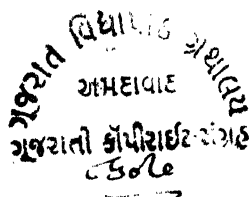 ગૂજરાત વિદ્યાપીઠ ગ્રંથાલય
અમદાવાદ
ગૂજરાતી કૉપીરાઈટ સંગ્રહ